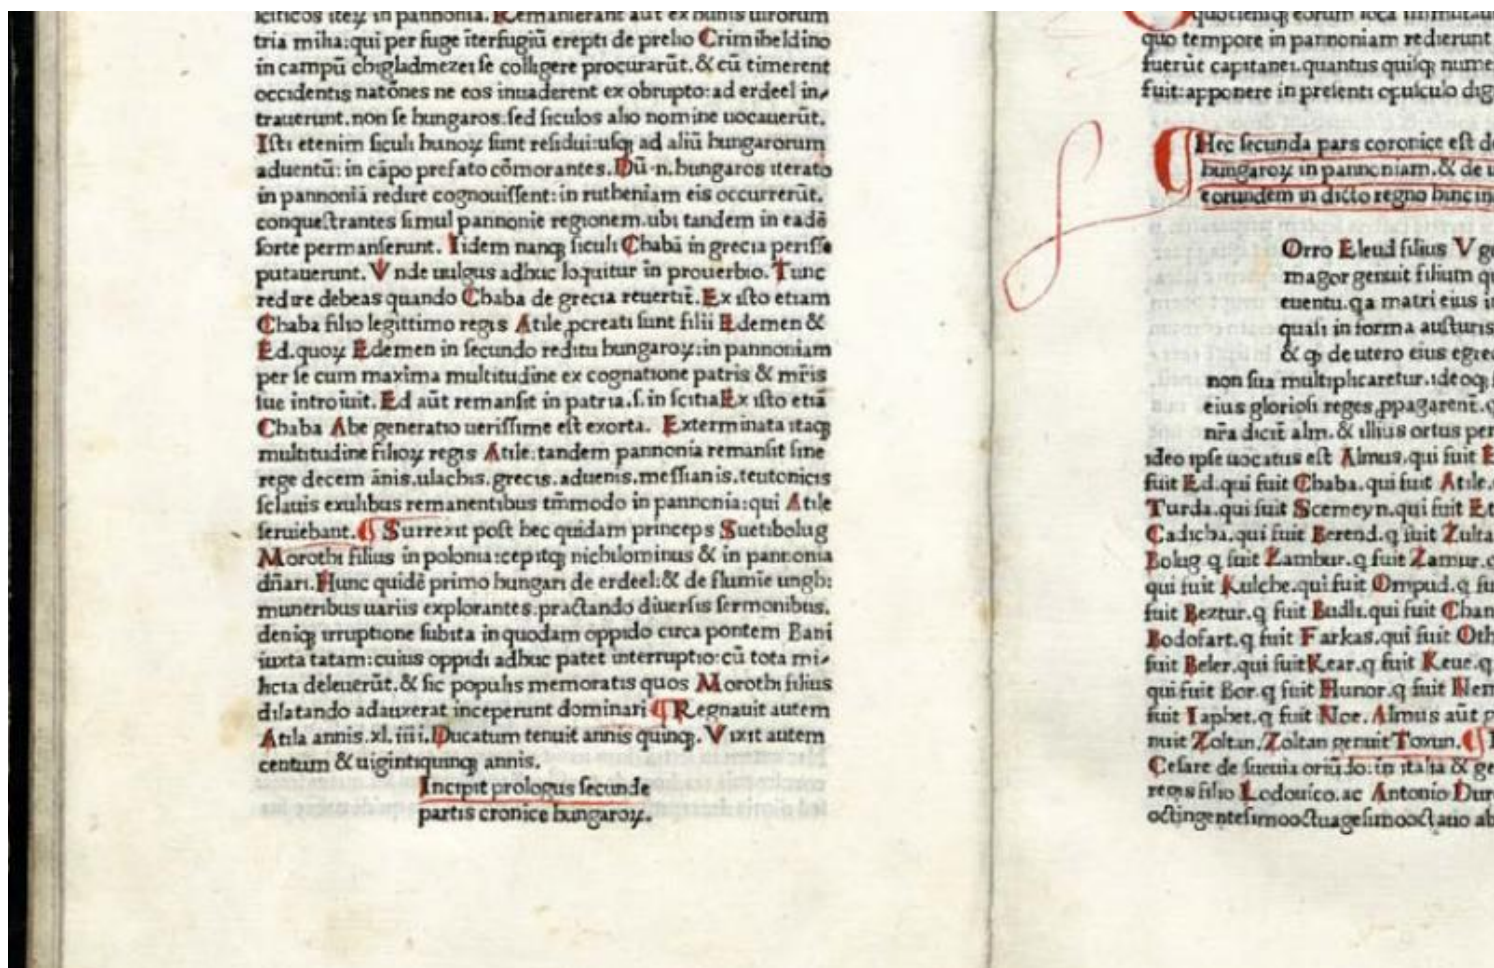 iterū in pannonia. Remanserant aut̄ ex hunis uirorum
tria milia:qui per fuge īterfugiū erepti de prelio Crimiheldino
in campū chigladmezei se colligere procurarūt.& cū timerent
occidentis natōnes ne eos inuaderent ex obrupto:ad erdeel in-
trauerunt.non se hungaros:sed siculos alio nomine uocauerūt.
Isti etenim siculi hunoꝝ sunt residui:usqꝫ ad aliū hungarorum
aduentū:in cāpo prefato cōmorantes.Dū.n.hungaros iterato
in pannoniā redire cognouissent:in rutheniam eis occurrerūt.
conquestrantes simul pannonie regionem.ubi tandem in eadē
sorte permanserunt. Iidem nanqꝫ siculi Chabā in grecia perisse
putauerunt. Vnde uulgus adhuc loquitur in prouerbio. Tunc
redire debeas quando Chaba de grecia reuertit̄. Ex isto etiam
Chaba filio legittimo regis Atile ꝓcreati sunt filii Edemen &
Ed.quoꝝ Edemen in secundo reditu hungaroꝝ:in pannoniam
per se cum maxima multitudine ex cognatione patris & mr̄is
sue introiuit. Ed aūt remansit in patria.s.in scitia Ex isto etiā
Chaba Abe generatio uerissime est exorta. Exterminata itaqꝫ
multitudine filioꝝ regis Atile:tandem pannonia remansit sine
rege decem ānis.ulachis.grecis.aduenis.messianis.teutonicis
sclauis exulibus remanentibus tm̄modo in pannonia:qui Atile
seruiebant.¶ Surrexit post hec quidam princeps Suetibolug
Morothi filius in polonia:cepitqꝫ nichilominus & in pannonia
dn̄ari.Hunc quidē primo hungari de erdeel:& de flumīe ungh:
muneribus uariis explorantes.practando diuersis sermonibus.
deniqꝫ irruptione subita in quodam oppido circa pontem Bani
iuxta tatam:cuius oppidi adhuc patet interruptio:cū tota mi-
licia deleuerūt.& sic populis memoratis quos Morothi filius
dilatando adauxerat inceperunt dominari ¶ Regnauit autem
Atila annis.xl.iiii.Ducatum tenuit annis quinqꝫ. Vixit autem
centum & uigintiquinqꝫ annis.
Incipit prologus secunde
partis cronice hungaroꝝ.
quotiensqꝫ eorum loca
quo tempore in pannoniam redierunt
fuerūt capitanei.quantus quilqꝫ nume
fuit:apponere in presenti opusculo dig
¶ Hec secunda pars coronice est de
hungaroꝝ in pannoniam.& de u
eorundem in dicto regno hinc in
Orro Eleud filius Vge
magor genuit filium qu
euentu.qa matri eius i
quasi in forma austuris
& qꝫ de utero eius egre
non sua multiplicaretur.ideoqꝫ
eius gloriosi reges ꝓpagarent̄.q
nr̄a dicit̄ alm.& illius ortus per
ideo ipse uocatus est Almus.qui fuit E
fuit Ed.qui fuit Chaba.qui fuit Atile.
Turda.qui fuit Scemeyn.qui fuit Et
Cadicha.qui fuit Berend.q fuit Zulta
Bolug q fuit Zambur.q fuit Zamur.q
qui fuit Kulche.qui fuit Ompud.q fu
fuit Beztur.q fuit Budli.qui fuit Chan
Bodofart.q fuit Farkas.qui fuit Oth
fuit Beler.qui fuit Kear.q fuit Keue.q
qui fuit Bor.q fuit Hunor.q fuit Nem
fuit Iaphet.q fuit Noe.Almus aūt g
nuit Zoltan.Zoltan genuit Toxun.¶
Cesare de sueuia oriūdo:in italia & ge
regis filio Lodouico.ac Antonio Dur
octingentesimooctuagesimooctauo ab